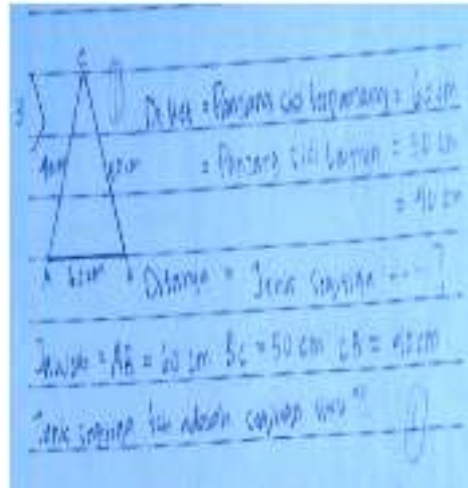 3
C
Diket = Panjang sisi terpanjang = 60 cm
= Panjang sisi lainnya = 50 cm
= 40 cm
A 60 cm B
Ditanya = Jenis segitiga ---?
Jawab = AB = 60 cm BC = 50 cm CA = 40 cm
Jenis segitiga itu adalah segitiga siku"